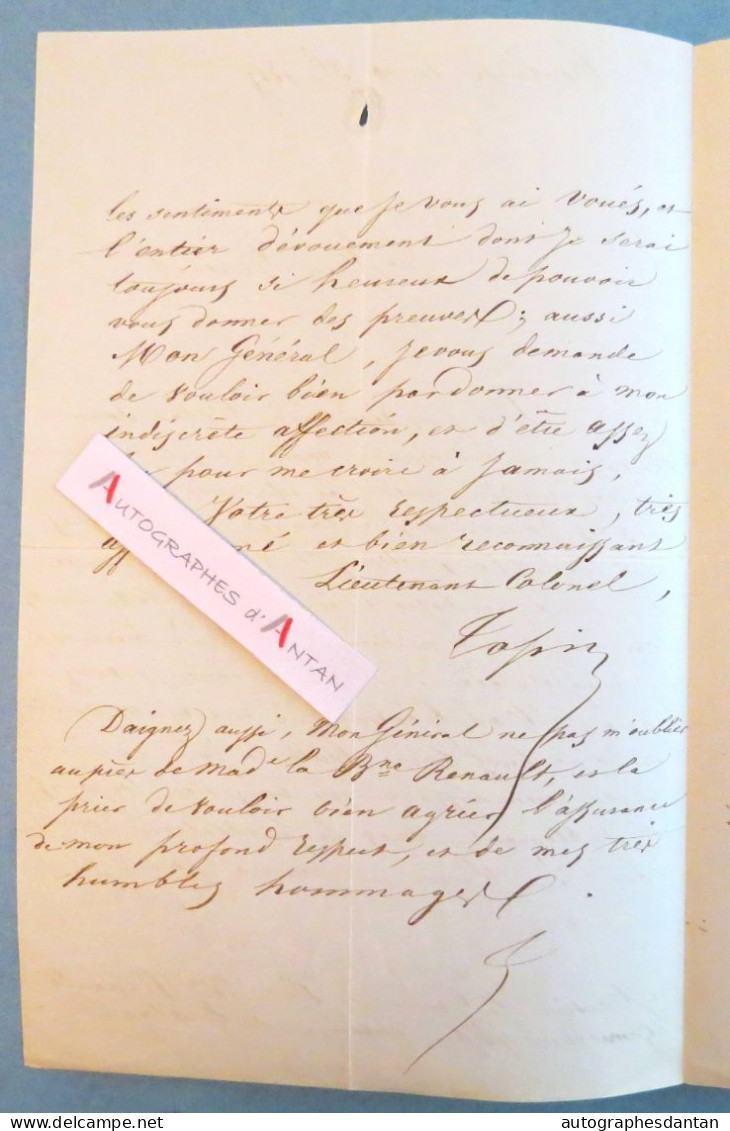 les sentiments que je vous ai voués, et
l'entier dévouement dont je serai
toujours si heureux de pouvoir
vous donner des preuves; aussi
Mon Général, je vous demande
de vouloir bien pardonner à mon
indiscrète affection, et d'être assez
pour me croire à jamais,
Votre très respectueux, très
et bien reconnaissant
Lieutenant Colonel,
Topin
AUTOGRAPHES d'ANTAN
Daignez aussi, Mon Général ne pas m'oublier
auprès de Made la Bne Renault, et la
prier de vouloir bien agréer l'assurance
de mon profond respect, et de mes très
humbles hommages.
autographesdantan